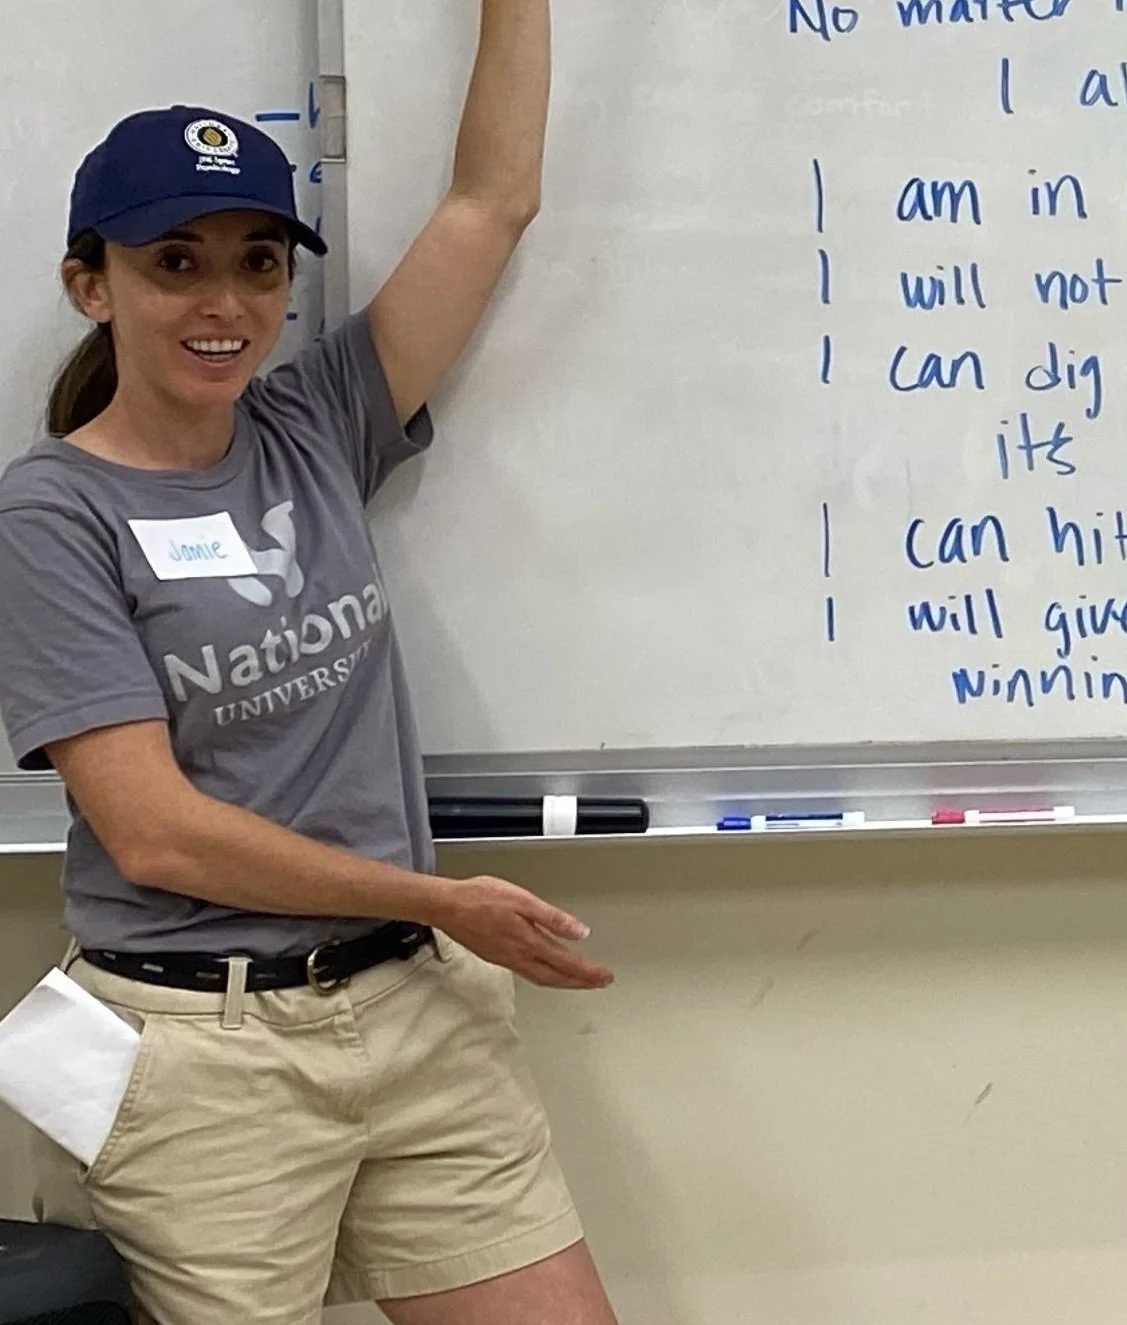 No matter
I al
I am in
I will not
I can dig
its
I can hit
I will give
winnin
Jamie
National
UNIVERSITY